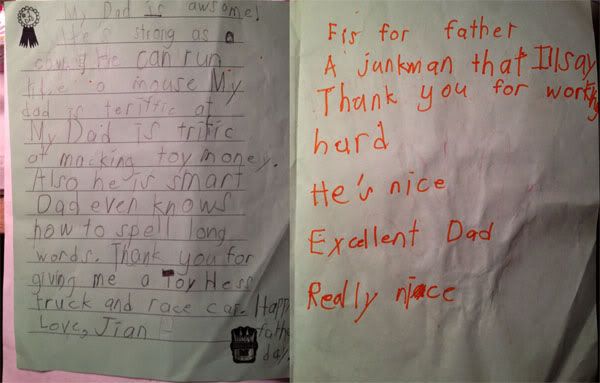 My Dad is awsome!
He's strong as a
He can run
like a mouse My
dad is teriffic at
My Dad is trific
at macking toy money.
Also he is smart
Dad even knows
how to spell long
words. Thank you for
giving me a Toy Hess
truck and race car. Happy
Love, Jian
day.
F is for father
A junkman that I'll say
Thank you for working
hard
He's nice
Excellent Dad
Really nice